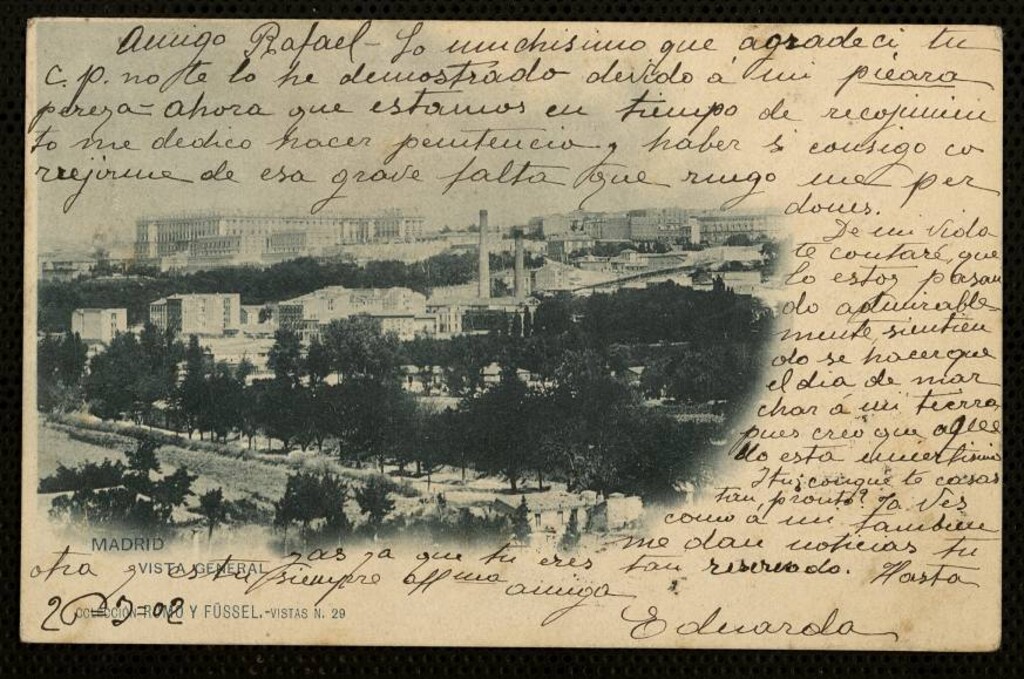 Amigo Rafael - Lo muchisimo que agradeci tu
c. p. no te lo he demostrado devido á mi picara
pereza = ahora que estamos en tiempo de recojimien
to me dedico hacer penitencia y haber si consigo co
rrejirme de esa grave falta que ruego me per
dones.
De mi vida
te contaré, que
lo estoy pasan
do admirable-
mente, sientien
do se hacerque
el dia de mar
char á mi tierra
pues creo que aque
llo está muertisimo
Y tu; conque te casas
tan pronto? Ya ves
como á mi tambien
me dan noticias tu
yas ya que tu eres tan reservado. Hasta
otra y esta siempre affma amiga
Eduarda
20-3-02
MADRID
VISTA GENERAL
COLECCIÓN ROMO Y FÜSSEL.-VISTAS N. 29